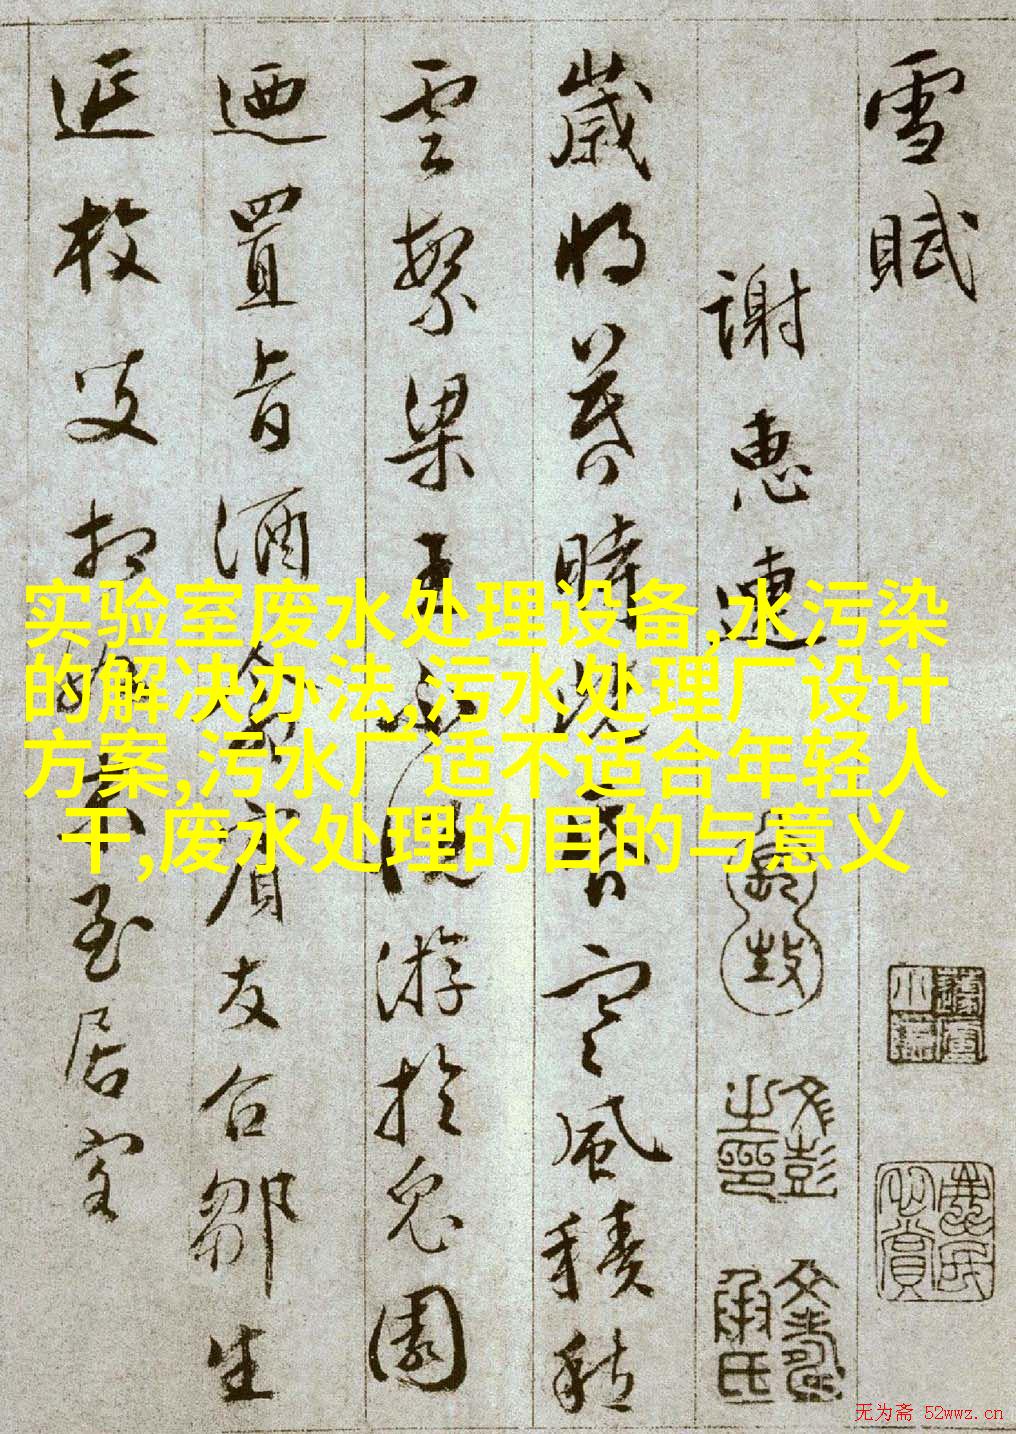 雪賦
謝惠連
歲將暮時既昏寒風積愁
雲繁梁王不悅游於兔園
迺置旨酒命賓友召鄒生
延枚叟相如末至居客
实验室废水处理设备,水污染
的解决办法,污水处理厂设计
方案,污水厂适不适合年轻人
干,废水处理的目的与意义
文彭之印
无为斋 52wwz.cn